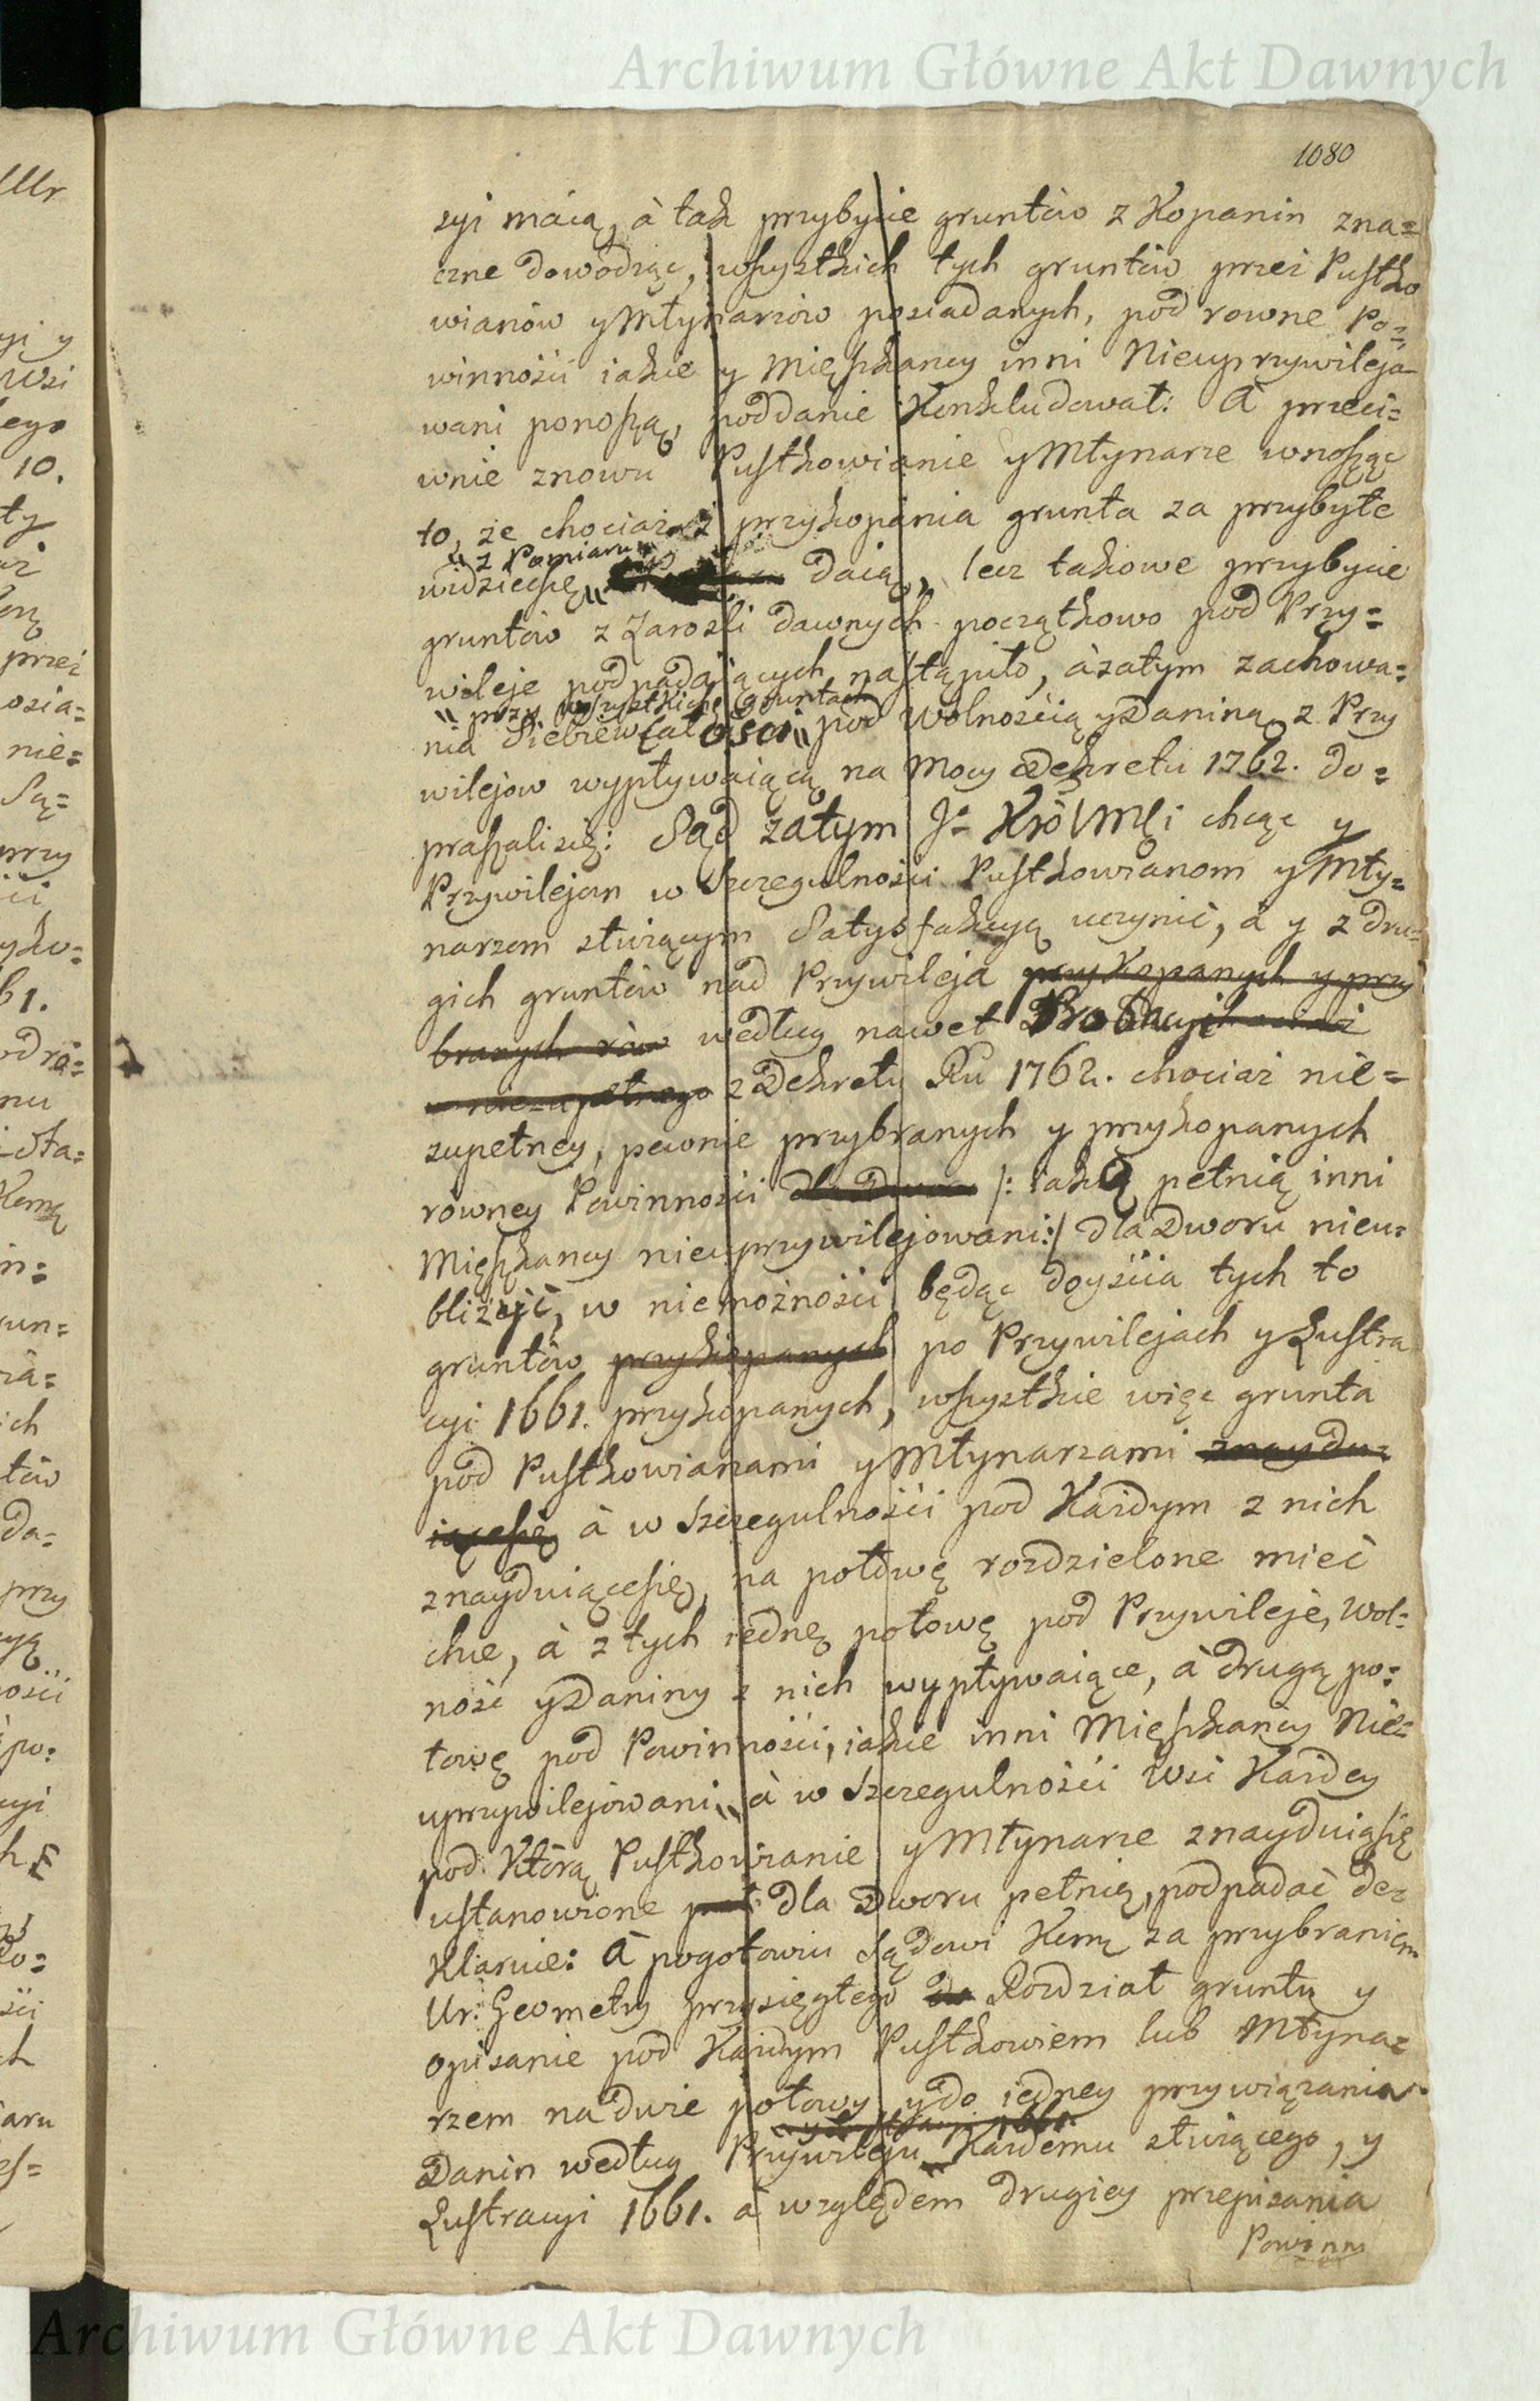 Archiwum Główne Akt Dawnych
1080
syi máią, à tak przybycie gruntów z Kopanin zna=
czne dowodząc, wszystkich tych gruntów przez Pustko
wianów y Młynarzów posiadanych, pod rowne Po=
winności iakie y Mięszkancy inni Nieuprzywileja-
wani ponoszą, poddanie Konkludował: A przeci=
wnie znowu Pustkowianie y Młynarze wnosząc
to, że chociaż z przykopánia grunta za przybyłe
z Pomiaru
widziećsię daią, lecz takowe przybycie
gruntów z Zarosli dawnych początkowo pod Przy=
wileje podpadaiących nastąpiło, à zatym zachowa=
przy wszystkich gruntach
nia Siebie w całości pod wolnością y Daniną z Przy
wilejow wypływaiącą na Mocy Dekretu 1762. do=
praszali się: Sąd zátym Jº KrólMći chcąc y
Przywilejom w Szczegulności Pustkowianom y Mły=
narzom służącym Satysfakcyą uczynić, à y z dru=
gich gruntów nad Przywileja przykopanych y przy
branych rów według nawet Probacyi chociaż
niezupełnego z Dekretu Ru 1762. chociaż nie=
zupełney, pewnie przybranych y przykopanych
równey Powinności dla Dworu /: iaką pełnią inni
Mięszkancy nieuprzywilejowani :/ dla Dworu nieu=
bliżyć, w niemożności będąc doyścia tych to
gruntów przykopanych po Przywilejach y Lustra
cyi 1661. przykopanych, wszystkie więc grunta
pod Pustkowianami y Młynarzami znaydu=
iącesię à w Szczegulności pod Każdym z nich
znayduiącesię, na połowę rozdzielone mieć
chce, à z tych iednę połowę pod Przywileje, Wol=
ność y Daniny z nich wypływaiące, à drugą po=
łowę pod Powinności, iakie inni Mięszkancy Nie=
uprzywilejowani à w Szczegulności Wsi Każdey
pod Którą Pustkowianie y Młynarze znayduiąsię
ustanowione dla Dworu pełnią, podpadać de=
klaruie: A pogotowiu Sądowi Kemu za przybraniem
Ur: Geometry przysięgłego do Rozdział gruntu y
opisanie pod Każdym Pustkowiem lub Młyna=
rzem na dwie połowy y do iedney przywiązania
y Lustracyi 1661.
Danin według Przywileju Każdemu służącego, y
Lustracyi 1661. à względem drugiey przepisania
Powinn
Archiwum Główne Akt Dawnych